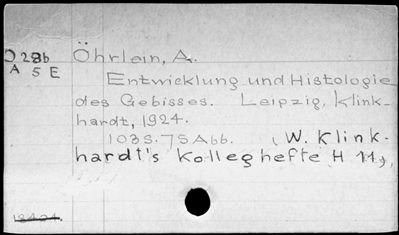 O 28b
A 5 E
Öhrlein, A.
Entwicklung und Histologie
des Gebisses. Leipzig, Klink-
hardt, 1924.
103S. 75 Abb. (W. Klink-
hardt's Kolleghefte H 11)
18424.